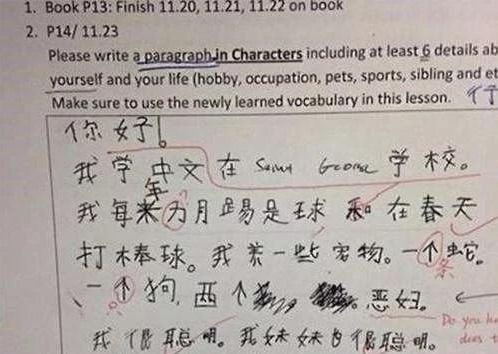 1. Book P13: Finish 11.20, 11.21, 11.22 on book
2. P14/ 11.23
Please write a paragraph in Characters including at least 6 details ab
yourself and your life (hobby, occupation, pets, sports, sibling and et
Make sure to use the newly learned vocabulary in this lesson.
你好!
我学中文在 Saint George 学校。
我每年 月踢是球和在春天
打棒球。我养一些宠物。一个蛇。
条
一个狗, 两个
我很聪明。我妹妹也很聪明。
Do you ha
does